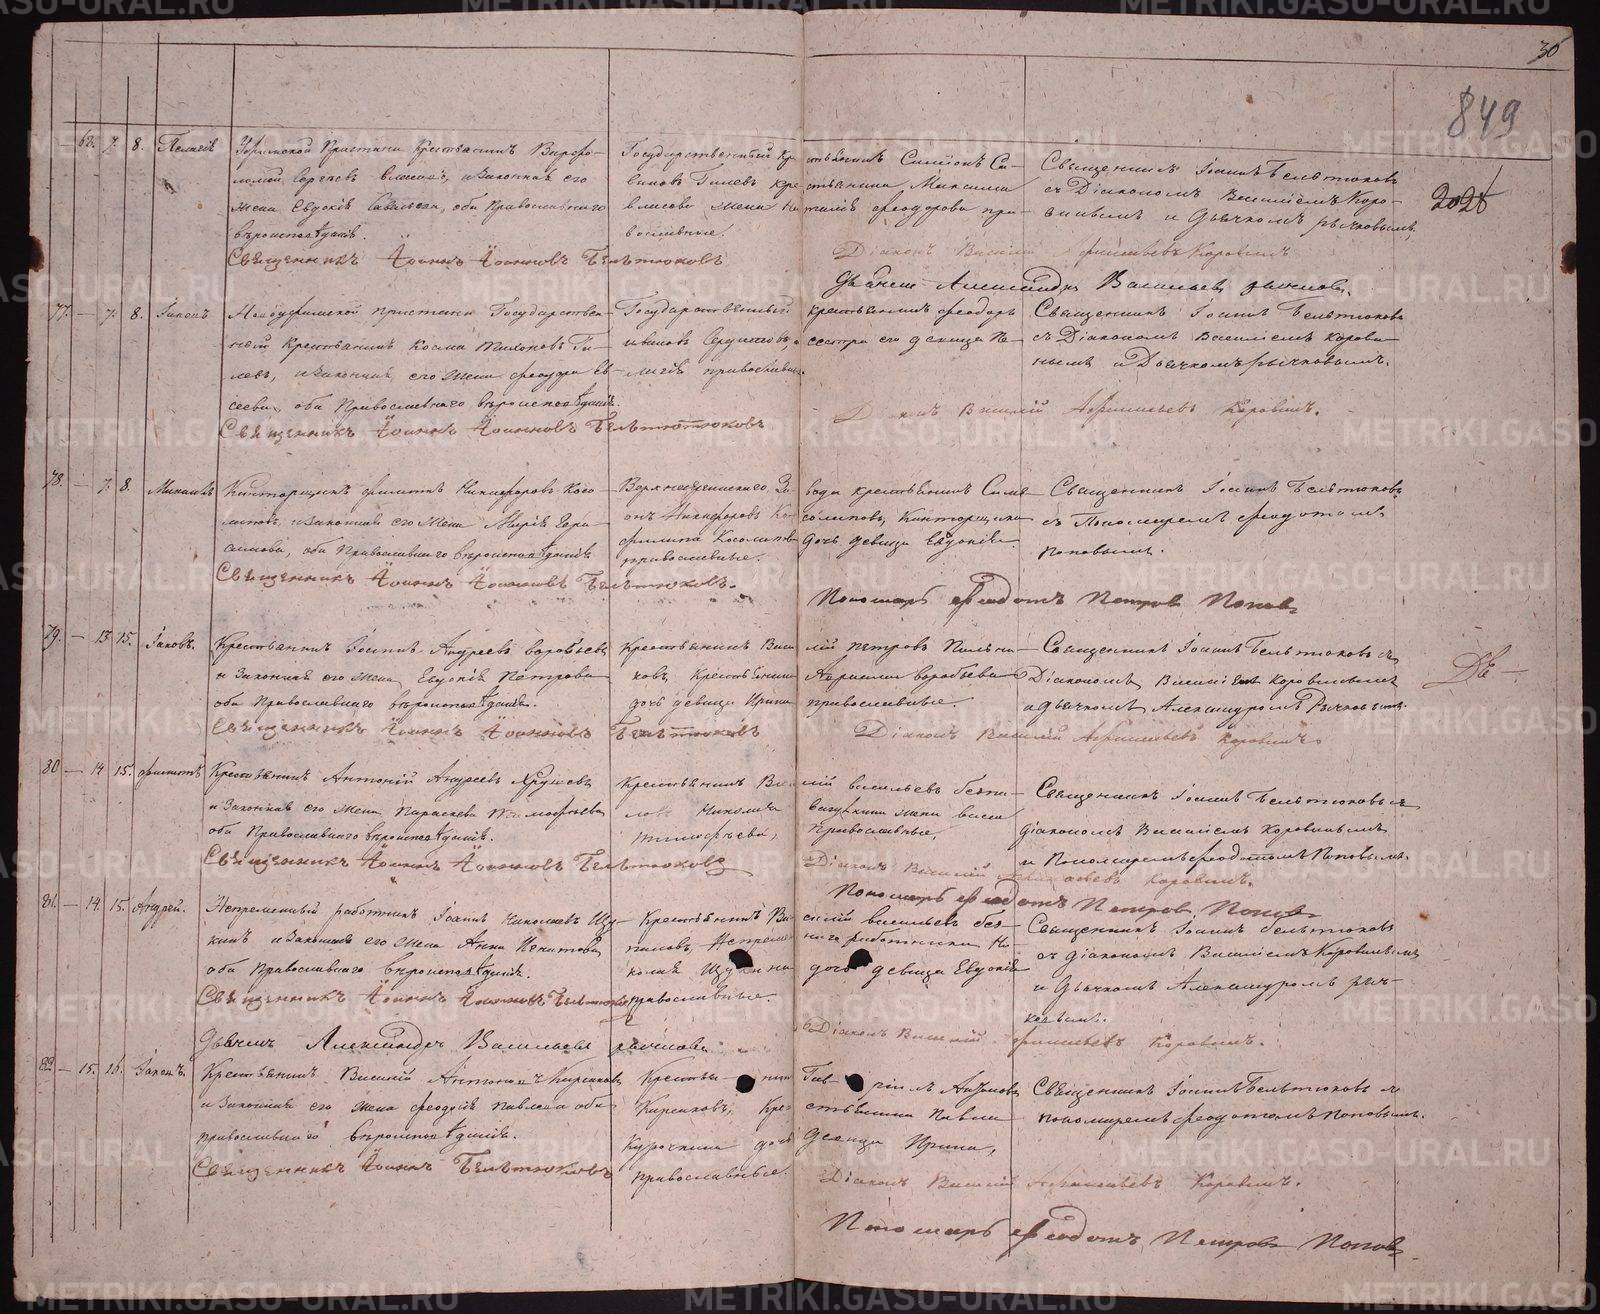 30
849
62. 7. 8. Пелагія
Уфимской Пристани Крестьянинъ Варфо-
ломей Сергѣевъ Власовъ, и законная его
жена Евдокія Савельева, оба Православнаго
вѣроисповѣданія.
Священникъ Іоаннъ Іоанновъ Бельтюковъ
Государственный Крестьянинъ Симеонъ Са-
виновъ Гилевъ крестьянина Максима
Власова жена Наталія Феодорова пра-
вославные.
Священникъ Іоаннъ Бельтюковъ
съ Діакономъ Василіемъ Коро-
винымъ и Дьячкомъ Рычковымъ.
2028
Діаконъ Василій Афанасьевъ Коровинъ
Дьячекъ Александръ Васильевъ Рычковъ.
77. — 7. 8. Іаковъ
пристани Государствен-
ной Крестьянинъ Косма Тихоновъ Ги-
левъ, и законная его жена Феодора Ев-
сеева, оба Православнаго вѣроисповѣданія.
Священникъ Іоаннъ Іоанновъ Бельтюковъ
Государственный крестьянинъ Феодоръ
сестра его девица Пе-
лагія православные.
Священникъ Іоаннъ Бельтюковъ
съ Діакономъ Василіемъ Корови-
нымъ и Дьячкомъ Рычковымъ.
Діаконъ Василій Афанасьевъ Коровинъ.
78. — 7. 8. Михаилъ
Канторщикъ Филиппъ Никифоровъ Косо-
лаповъ, и законная его жена Марія Гера-
симова, оба Православнаго вѣроисповѣданія
Священникъ Іоаннъ Іоанновъ Бельтюковъ.
завода крестьянинъ Симе-
онъ Никифоровъ Косолаповъ, Канторщика
Филиппа Косолапова дочь девица Евдокія
православные.
Священникъ Іоаннъ Бельтюковъ
съ Пономаремъ Феодотомъ
Поповымъ.
Пономарь Феодотъ Петровъ Поповъ
79. — 13. 15. Іаковъ.
Крестьянинъ Іосифъ Андреевъ Воробьевъ
и законная его жена Евдокія Петрова
оба Православнаго вѣроисповѣданія.
Священникъ Іоаннъ Іоанновъ Бельтюковъ
Крестьянинъ Василій Петровъ
Крестьянина Воробьева
дочь девица Ирина православные.
Священникъ Іоаннъ Бельтюковъ съ
Діакономъ Василіемъ Коровинымъ
и дьячкомъ Александромъ Рычковымъ.
Діаконъ Василій Афанасьевъ Коровинъ.
80 — 14 15. Филиппъ
Крестьянинъ Антоній Андреевъ
и законная его жена Параскева Тимофеева
оба Православнаго вѣроисповѣданія.
Священникъ Іоаннъ Іоанновъ Бельтюковъ
Крестьянинъ Василій Васильевъ Безпа-
ловъ Николая жена
Тимофѣева, Православные,
Священникъ Іоаннъ Бельтюковъ съ
діакономъ Василіемъ Коровинымъ
и Пономаремъ Феодотомъ Поповымъ.
Діаконъ Василій Афанасьевъ Коровинъ.
Пономарь Феодотъ Петровъ Поповъ
81. — 14. 15. Андрей.
Непременный работникъ Іоаннъ Николаевъ Щу-
кинъ и законная его жена Анна Игнатова
оба Православнаго вѣроисповѣданія.
Священникъ Іоаннъ Іоанновъ Бельтюковъ
Крестьянинъ Василій Васильевъ Без-
паловъ, Непременнаго работника Ни-
колая Щукина дочь девица Евдокія
православные.
Священникъ Іоаннъ Бельтюковъ
съ діакономъ Василіемъ Коровинымъ
и Дьячкомъ Александромъ Рыч-
ковымъ.
Діаконъ Василій Афанасьевъ Коровинъ.
Дьячекъ Александръ Васильевъ Рычковъ
82 — 15. 16. Іаковъ.
Крестьянинъ Василій Антоновъ Кирсановъ
и законная его жена Феодосія Павлова оба
православнаго вѣроисповѣданія.
Священникъ Іоаннъ Бельтюковъ
Крестьянинъ Гавріилъ Антоновъ
Кирсановъ, Крестьянина Павла
Курочкина дочь девица Ирина,
православные.
Священникъ Іоаннъ Бельтюковъ съ
пономаремъ Феодотомъ Поповымъ.
Діаконъ Василій Афанасьевъ Коровинъ.
Пономарь Феодотъ Петровъ Поповъ
METRIKI.GASO-URAL.RU